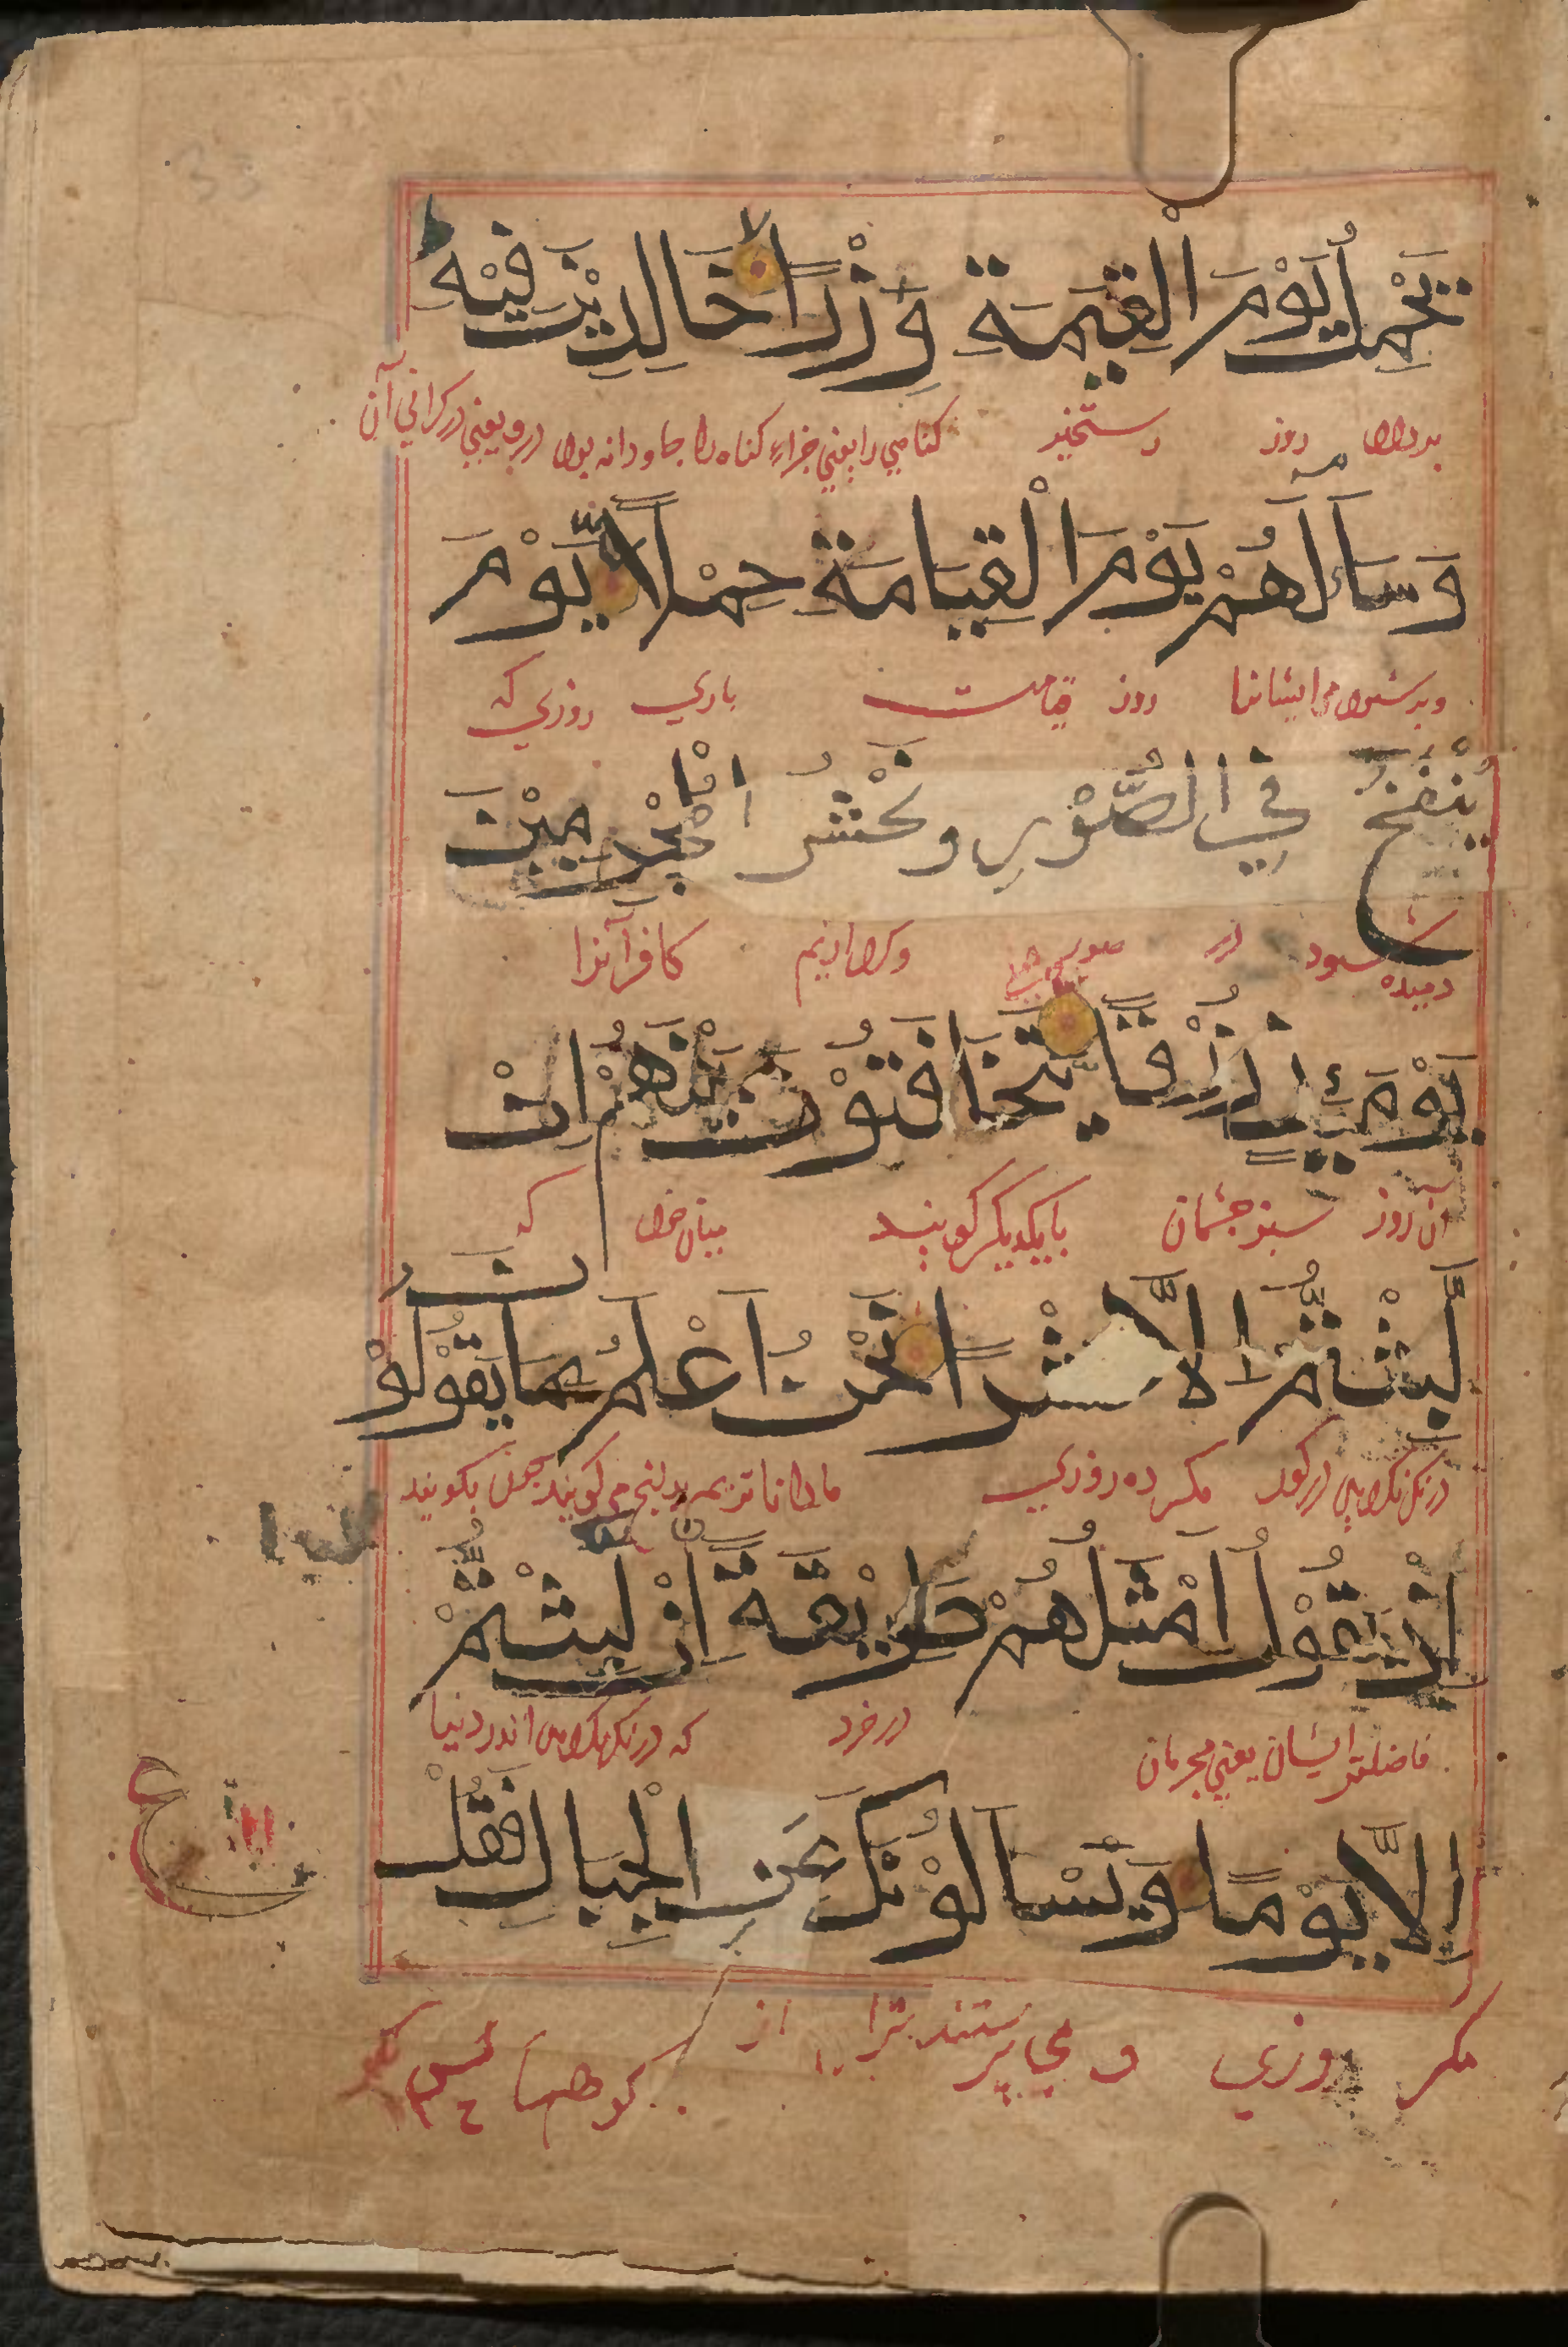 يَحْمِلُ يَوْمَ الْقِيٰمَةِ وِزْرًا خَالِدِيْنَ فِيْهِ
بردارد روز رستخیز كناهي را یعني جزاء كناه را جاودانه بوند درو یعني در كراني آن
وَسَآءَ لَهُمْ يَوْمَ الْقِيَامَةِ حِمْلًا يَّوْمَ
روز قیامت باري روزي كه
يُنْفَخُ فِي الصُّوْرِ وَنَحْشُرُ الْمُجْرِمِيْنَ
دمیده شود در صور كافرانرا
يَوْمَئِذٍ زُرْقًا يَتَخَافَتُوْنَ بَيْنَهُمْ اِنْ
آن روز سبز چشمان بایكدیكر كویند میان خود كه
لَّبِثْتُمْ اِلَّا عَشْرًا نَحْنُ اَعْلَمُ بِمَا يَقُوْلُوْنَ
مكر ده روزي ما داناتریم بدانچه مي كویند چون بكویند
اِذْ يَقُوْلُ اَمْثَلُهُمْ طَرِيْقَةً اِنْ لَّبِثْتُمْ
فاضلتر ایشان یعني مجرمان در خرد كه اندر دنیا
اِلَّا يَوْمًا وَيَسْـَٔالُوْنَكَ عَنِ الْجِبَالِ فَقُلْ
مكر روزي و مي پرستند ترا از كوهها پس